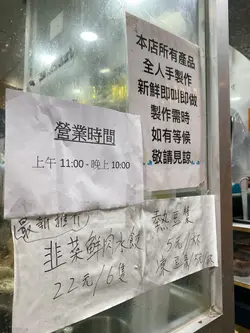 本店所有產品
全人手製作
新鮮即叫即做
製作需時
如有等候
敬請見諒
營業時間
上午 11:00 - 晚上 10:00
(最新推介)
韭菜鮮肉水餃
22元/6隻
熱豆漿
5元/杯
凍豆漿6元/杯